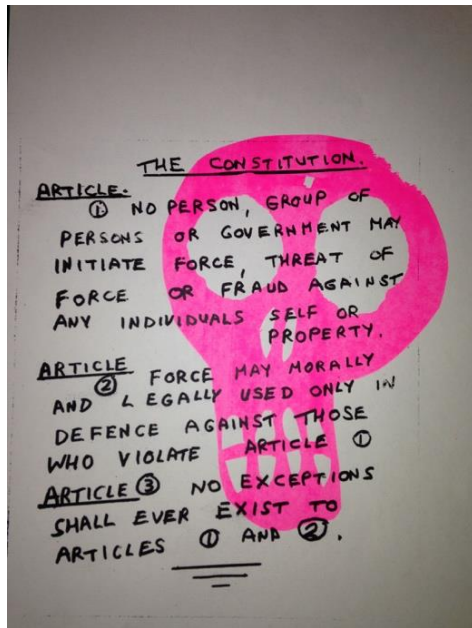 THE CONSTITUTION.
ARTICLE.
① NO PERSON, GROUP OF
PERSONS OR GOVERNMENT MAY
INITIATE FORCE, THREAT OF
FORCE OR FRAUD AGAINST
ANY INDIVIDUALS SELF OR
PROPERTY.
ARTICLE
② FORCE MAY MORALLY
AND LEGALLY USED ONLY IN
DEFENCE AGAINST THOSE
WHO VIOLATE ARTICLE ①
ARTICLE ③ NO EXCEPTIONS
SHALL EVER EXIST TO
ARTICLES ① AND ②.